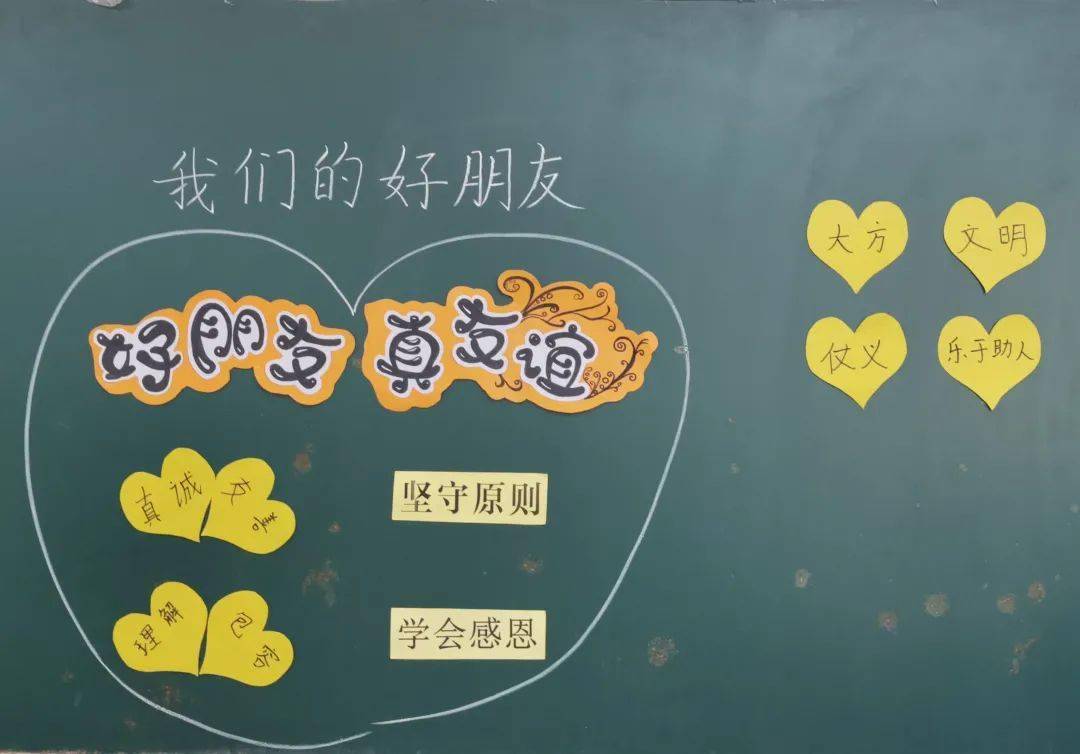 我们的好朋友
好朋友 真友谊
真诚 友善
坚守原则
理解 包容
学会感恩
大方
文明
仗义
乐于助人